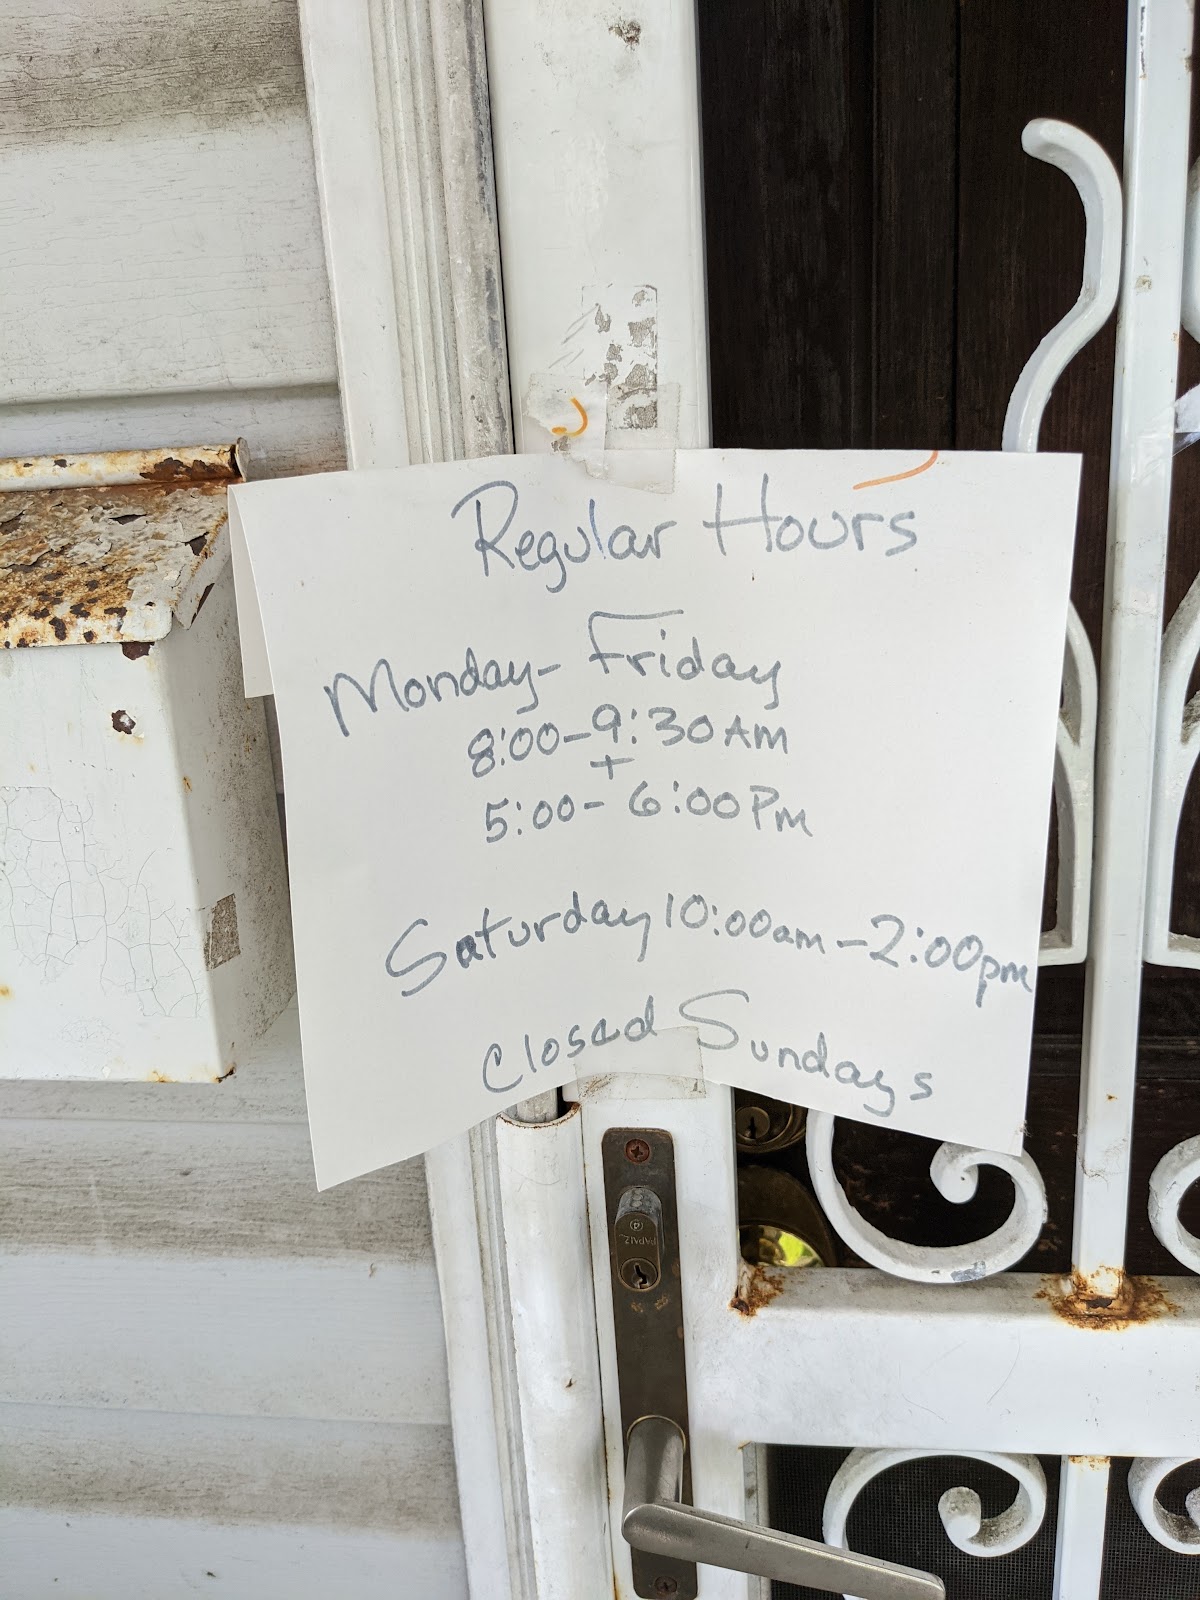 Regular Hours
Monday- Friday
8:00-9:30 AM
+
5:00- 6:00 Pm
Saturday 10:00am -2:00pm
Closed Sundays
PAPAIZ